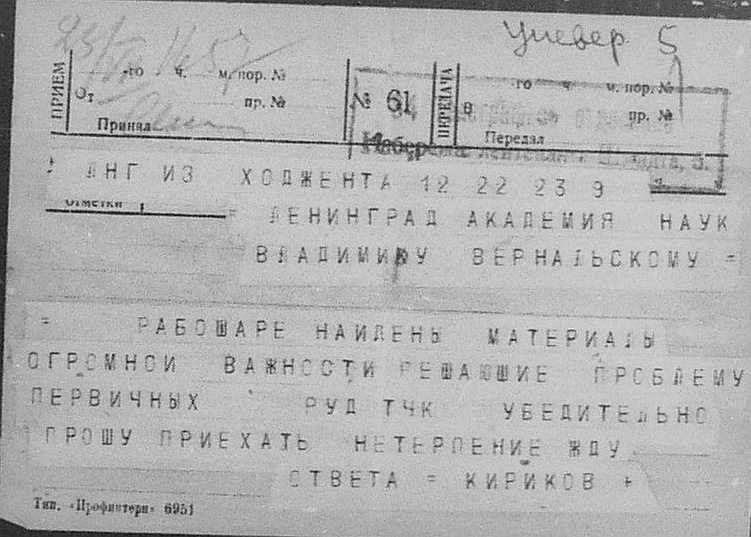 Универ 5
ПРИЕМ
-го ч. м. пор. №
От пр. №
Принял
№ 61
ПЕРЕДАЧА
го ч. м. пор. №
В пр. №
Передал
Набережная Лейтенанта Шмидта, 5.
ЛНГ ИЗ ХОДЖЕНТА 12 22 23 9
Отметки
= ЛЕНИНГРАД АКАДЕМИЯ НАУК
ВЛАДИМИРУ ВЕРНАЛЬСКОМУ =
= РАБОШАРЕ НАИДЕНЫ МАТЕРИАЛЫ
ОГРОМНОИ ВАЖНОСТИ РЕШАЮШИЕ ПРОБЛЕМУ
ПЕРВИЧНЫХ РУД ТЧК УБЕДИТЕЛЬНО
ПРОШУ ПРИЕХАТЬ НЕТЕРПЕНИЕ ЖДУ
ОТВЕТА = КИРИКОВ +
Тип. «Профинтерн» 6951